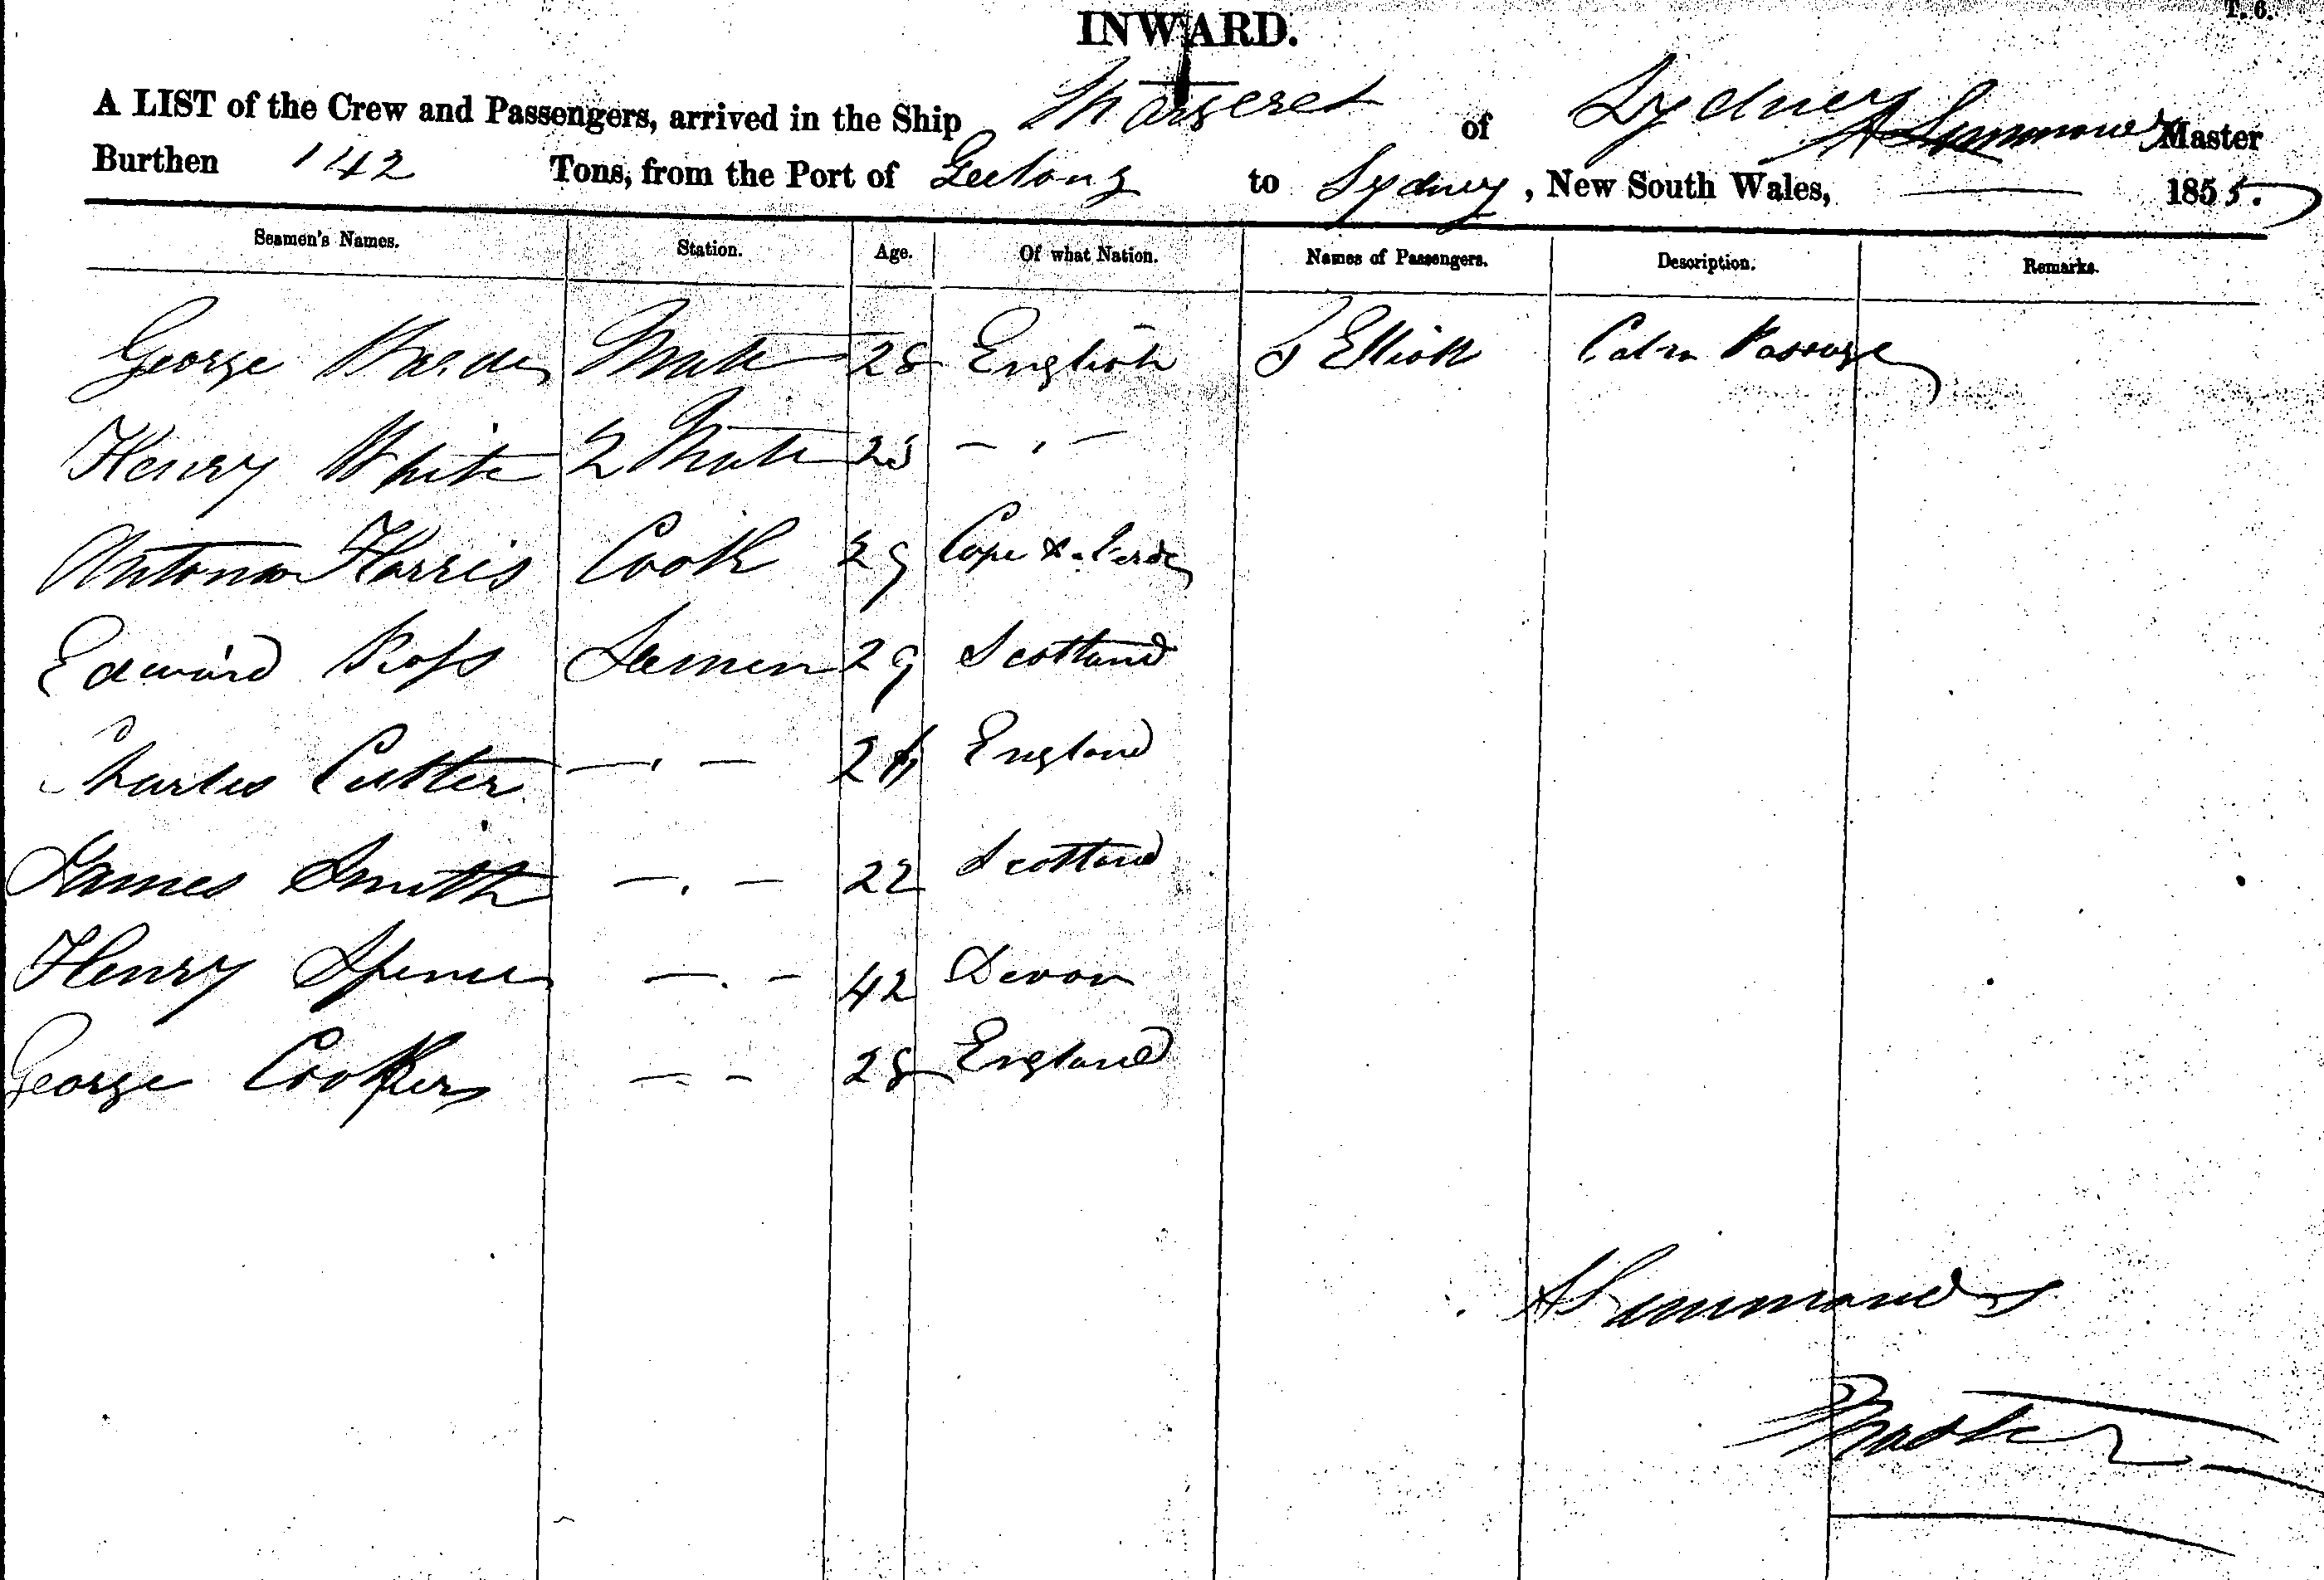 T. 6.
INWARD.
A LIST of the Crew and Passengers, arrived in the Ship Margeret of Sydney A Simmonds Master
Burthen 142 Tons, from the Port of Geelong to Sydney, New South Wales, 1855.
Seamen's Names. Station. Age. Of what Nation. Names of Passengers. Description. Remarks.
George Mate 28 English Elliott Cabin Passenger
Henry White 2 Mate 23 — " —
Antonio Harris Cook 29 Cape de Verde
Edward Ross Seamen 29 Scotland
Charles Cutter — " — England
James Smith — " — 22 Scotland
Henry Spence — " — 42 Devon
George Cookers — " — 28 England
A Simmonds
Master